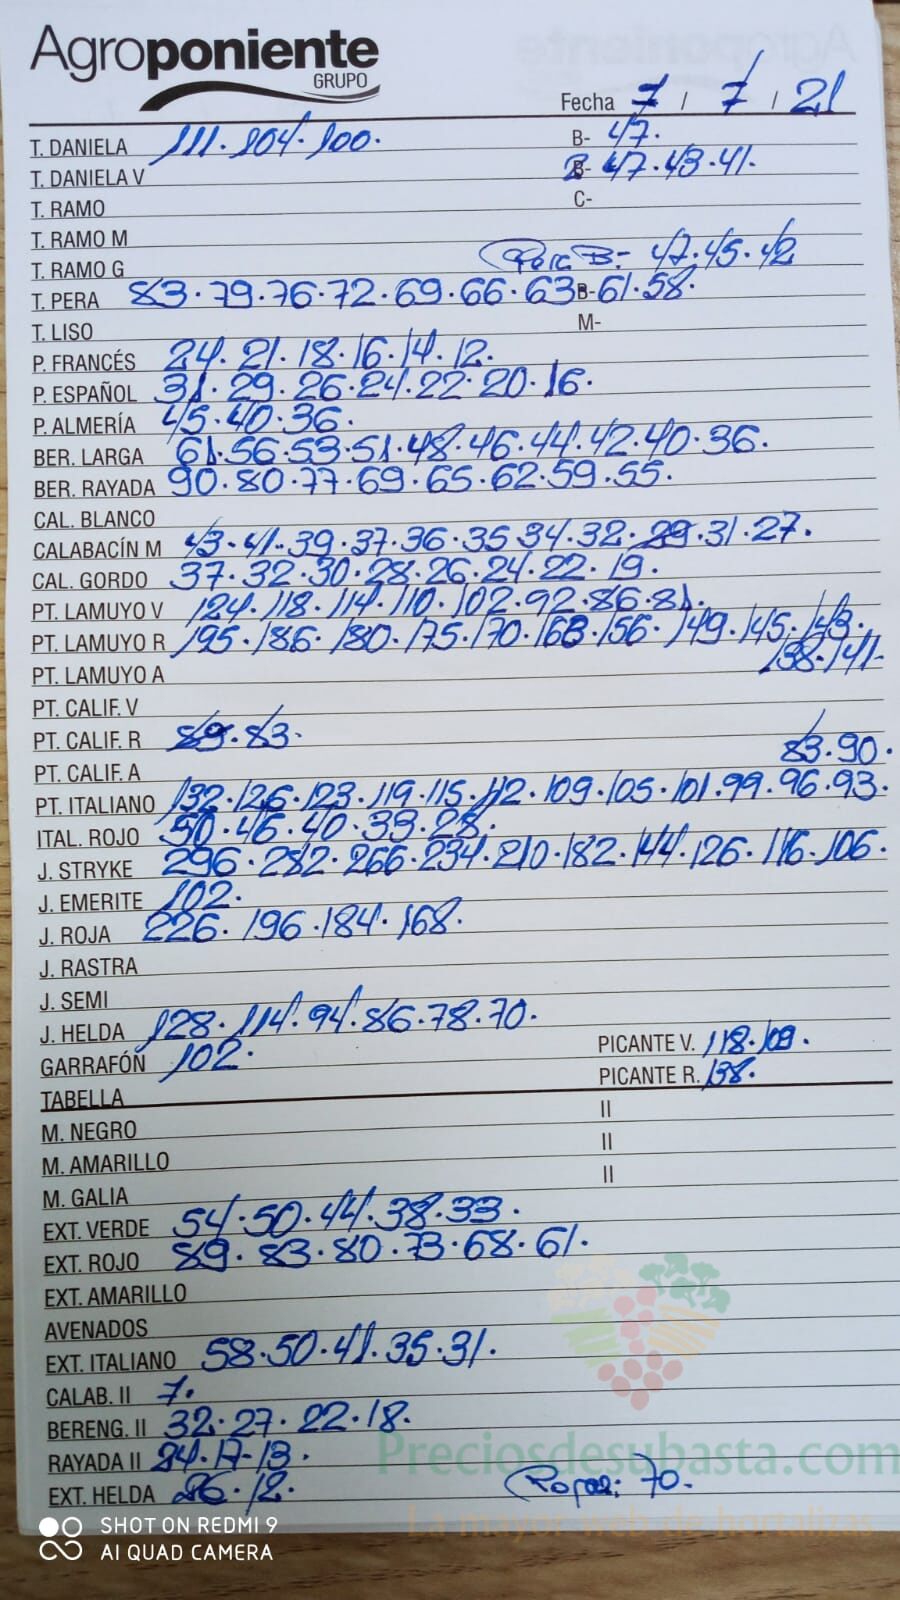 Agroponiente
GRUPO
Fecha 7 / 7 / 21
T. DANIELA 111. 104. 100. B- 47.
T. DANIELA V B- 47. 43. 41.
T. RAMO C-
T. RAMO M
T. RAMO G Pera B: 47. 45. 42
T. PERA 83. 79. 76. 72. 69. 66. 63. B- 61. 58.
T. LISO M-
P. FRANCÉS 24. 21. 18. 16. 14. 12.
P. ESPAÑOL 31. 29. 26. 24. 22. 20. 16.
P. ALMERÍA 45. 40. 36.
BER. LARGA 61. 56. 53. 51. 48. 46. 44. 42. 40. 36.
BER. RAYADA 90. 80. 77. 69. 65. 62. 59. 55.
CAL. BLANCO
CALABACÍN M 43. 41. 39. 37. 36. 35. 34. 32. 29. 31. 27.
CAL. GORDO 37. 32. 30. 28. 26. 24. 22. 19.
PT. LAMUYO V 124. 118. 114. 110. 102. 92. 86. 81.
PT. LAMUYO R 195. 186. 180. 175. 170. 163. 156. 149. 145. 143.
138. 141.
PT. LAMUYO A
PT. CALIF. V
PT. CALIF. R 89. 83.
83. 90.
PT. CALIF. A
PT. ITALIANO 132. 126. 123. 119. 115. 112. 109. 105. 101. 99. 96. 93.
ITAL. ROJO 50. 46. 40. 33. 28.
J. STRYKE 296. 282. 266. 234. 210. 182. 144. 126. 116. 106.
J. EMERITE 102.
J. ROJA 226. 196. 184. 168.
J. RASTRA
J. SEMI
J. HELDA 128. 114. 94. 86. 78. 70.
GARRAFÓN 102. PICANTE V. 118. 109.
TABELLA PICANTE R. 138.
M. NEGRO II
M. AMARILLO II
M. GALIA II
EXT. VERDE 54. 50. 44. 38. 33.
EXT. ROJO 89. 83. 80. 73. 68. 61.
EXT. AMARILLO
AVENADOS
EXT. ITALIANO 58. 50. 41. 35. 31.
CALAB. II 7.
BERENG. II 32. 27. 22. 18.
RAYADA II 24. 17. 13.
Preciosdesubasta.com
EXT. HELDA 26. 12. 70.
La mayor web de hortalizas
SHOT ON REDMI 9
AI QUAD CAMERA